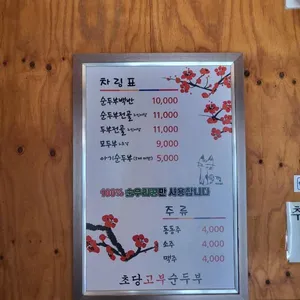 차림표
순두부백반 10,000
순두부전골 11,000
두부전골 11,000
모두부 9,000
아기순두부 5,000
100% 순우리콩만 사용합니다
주 류
동동주 4,000
소주 4,000
맥주 4,000
초당고부순두부